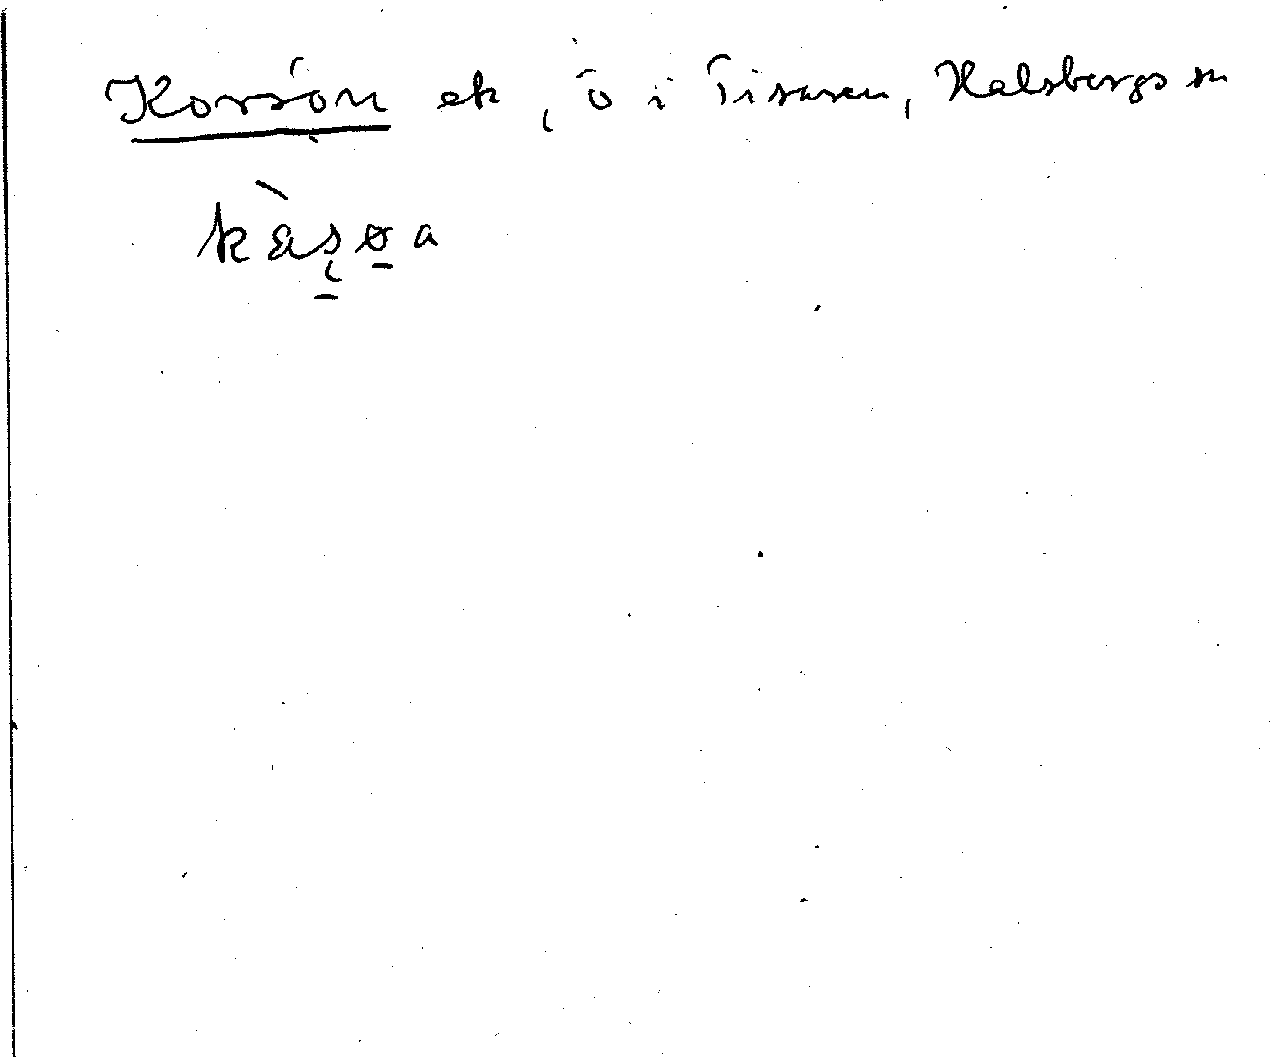 Korsön ek, ö i Tisaren, Halsbergs sn